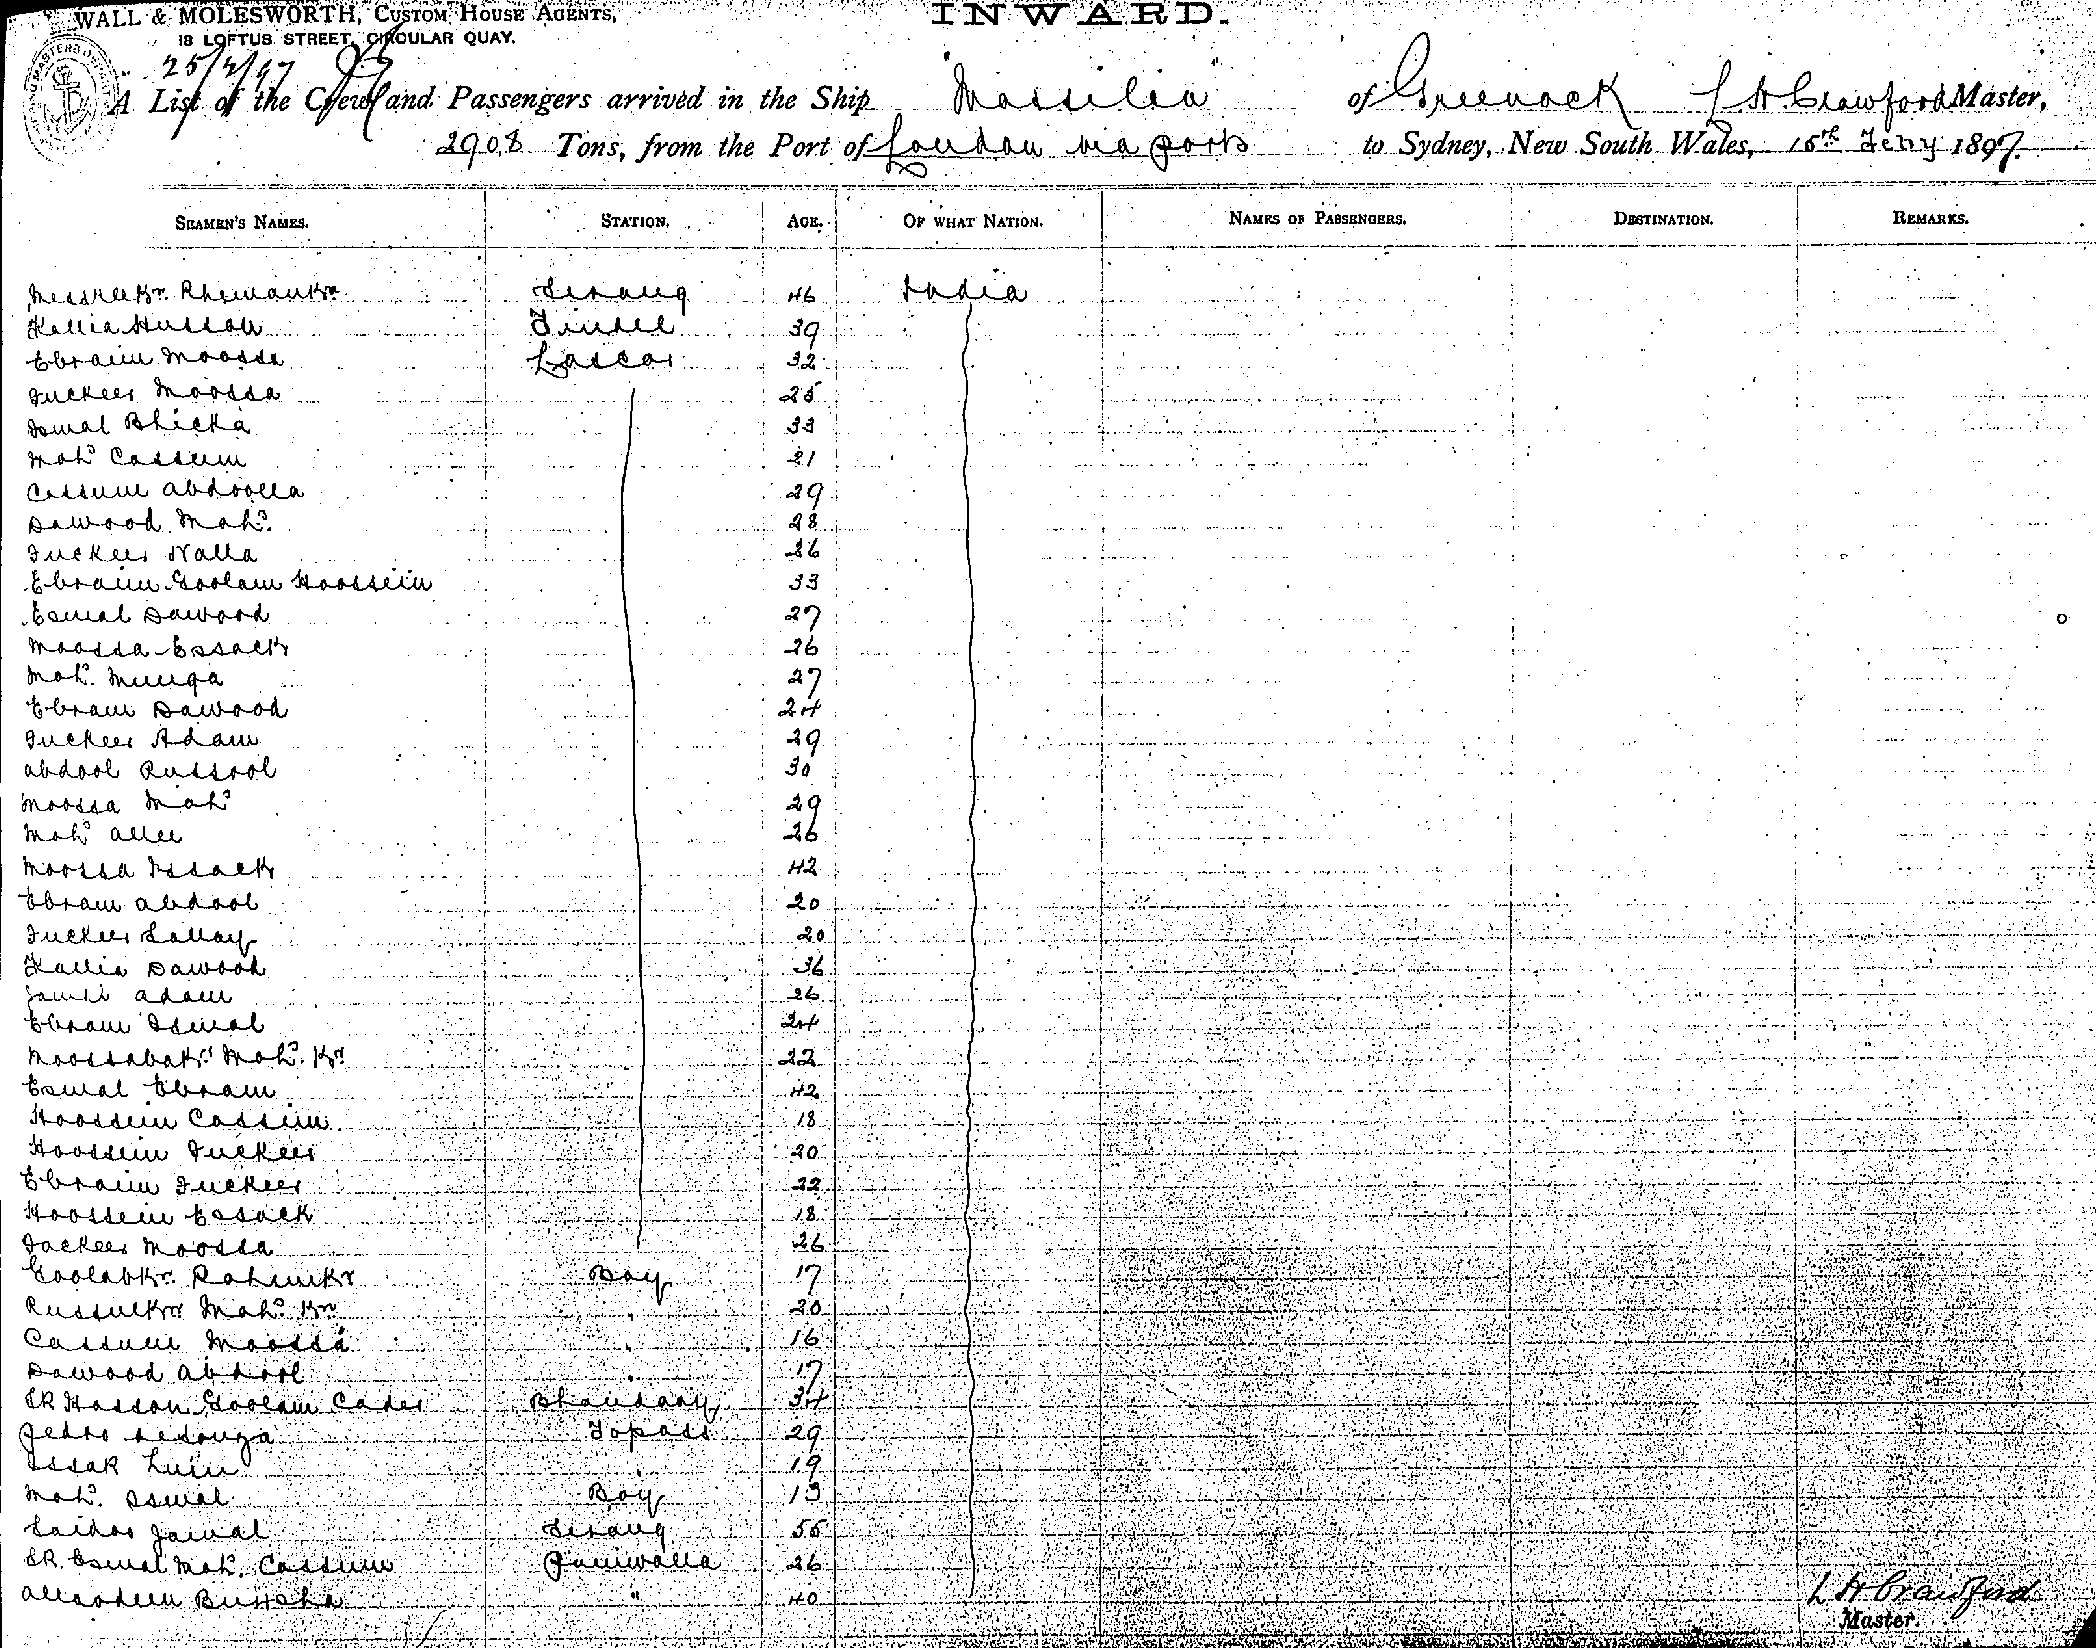 WALL & MOLESWORTH, CUSTOM HOUSE AGENTS,
18 LOFTUS STREET, CIRCULAR QUAY.
INWARD.
25/2/97
A List of the Crew and Passengers arrived in the Ship "Massilia" of Greenock L H Crawford Master,
2908 Tons, from the Port of London via ports to Sydney, New South Wales, 15th Feby 1897.
SEAMEN'S NAMES. STATION. AGE. OF WHAT NATION. NAMES OF PASSENGERS. DESTINATION. REMARKS.
Rhemankn Serang 46 India
Kallia Husson Tindel 39
Ebraim Moossa Lascar 32
Fuckeer Moossa 25
Ismal Bhicka 33
Mohd Cassum 21
Cassum Abdoolla 29
Dawood Mohd. 28
Fuckeer Nalla 26
Ebraim Goolam Hoossein 33
Esmal Dawood 27
Moossa Essack 26
Mohd. Munga 27
Ebram Dawood 24
Fuckeer Adam 29
Abdool Russool 30
Moossa Mohd 29
Mohd Allee 26
Moossa Issack 42
Ebram Abdool 20
Fuckeer 20
Kallia Dawood 36
Adam 26
Ebram Ismal 24
Moossabakr Mohd. Kn 22
Esmal Ebram 42
Hoossein Cassim 18
Hoossein Fuckeer 20
Ebraim Fuckeer 22
Hoossein Essack 18
Fackeer Moossa 26
Goolabkn Rahimkn Boy 17
Russulkn Mohd Kn " 20
Cassum Moossa " 16
Dawood Abdool " 17
SR Hasson Goolam Cader Bhandary 34
Pedro deSouza Topass 29
Issak " 19
Mohd. Ismal Boy 13
Jamal Serang 55
SR. Esmal Mohd. Cassum Paniwalla 26
Allaodeen " 40
L H Crawford
Master.